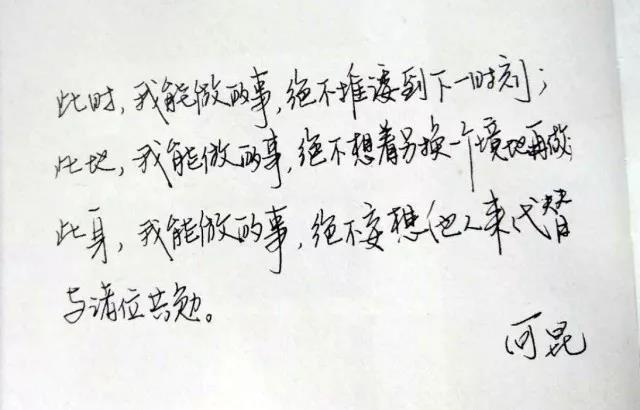 此时，我能做的事，绝不推诿到下一时刻；
此地，我能做的事，绝不想着另换一个境地再做；
此身，我能做的事，绝不妄想他人来代替
与诸位共勉。
何昆